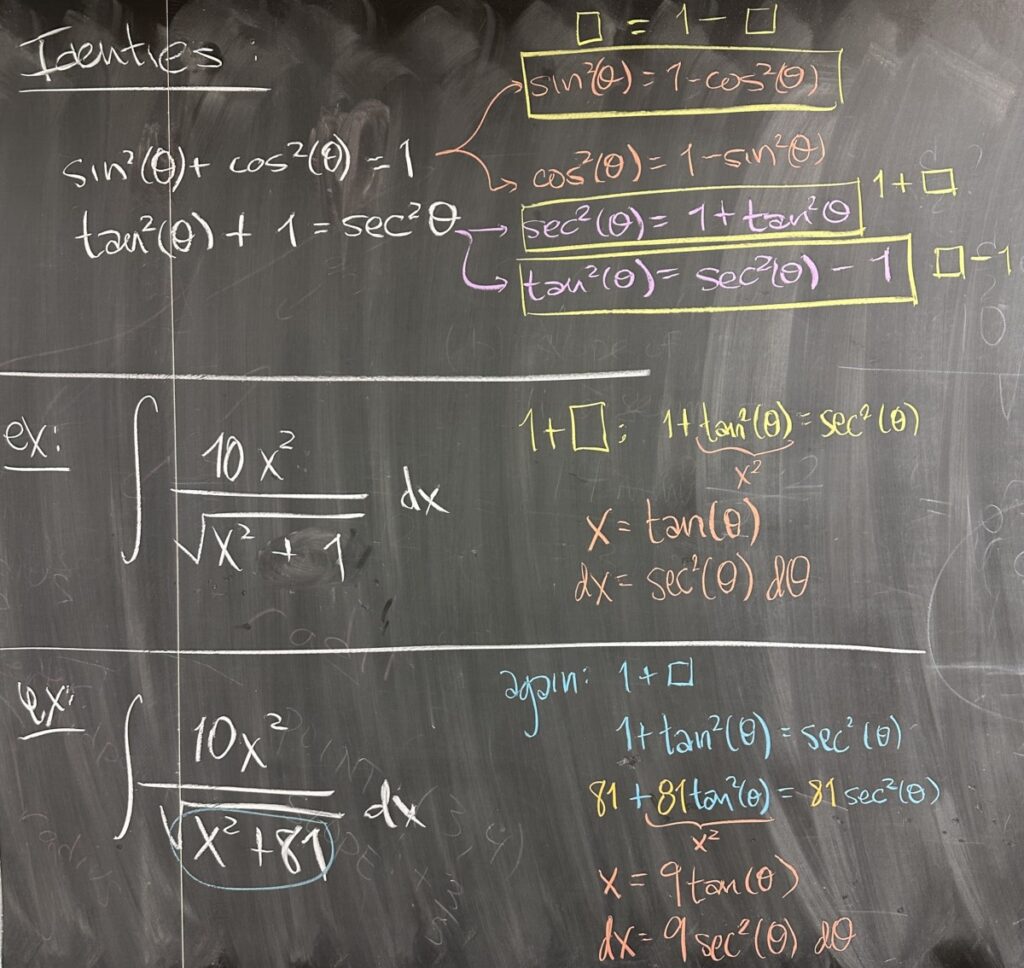 Identies :
□ = 1 - □
sin²(θ) = 1 - cos²(θ)
sin²(θ) + cos²(θ) = 1
cos²(θ) = 1 - sin²(θ)
tan²(θ) + 1 = sec²θ
sec²(θ) = 1 + tan²θ
1 + □
tan²(θ) = sec²(θ) - 1
□ - 1
ex:
∫ 10x² / √(x² + 1) dx
1 + □ : 1 + tan²(θ) = sec²(θ)
x²
x = tan(θ)
dx = sec²(θ) dθ
ex:
∫ 10x² / √(x² + 81) dx
again: 1 + □
1 + tan²(θ) = sec²(θ)
81 + 81tan²(θ) = 81sec²(θ)
x²
x = 9tan(θ)
dx = 9sec²(θ) dθ